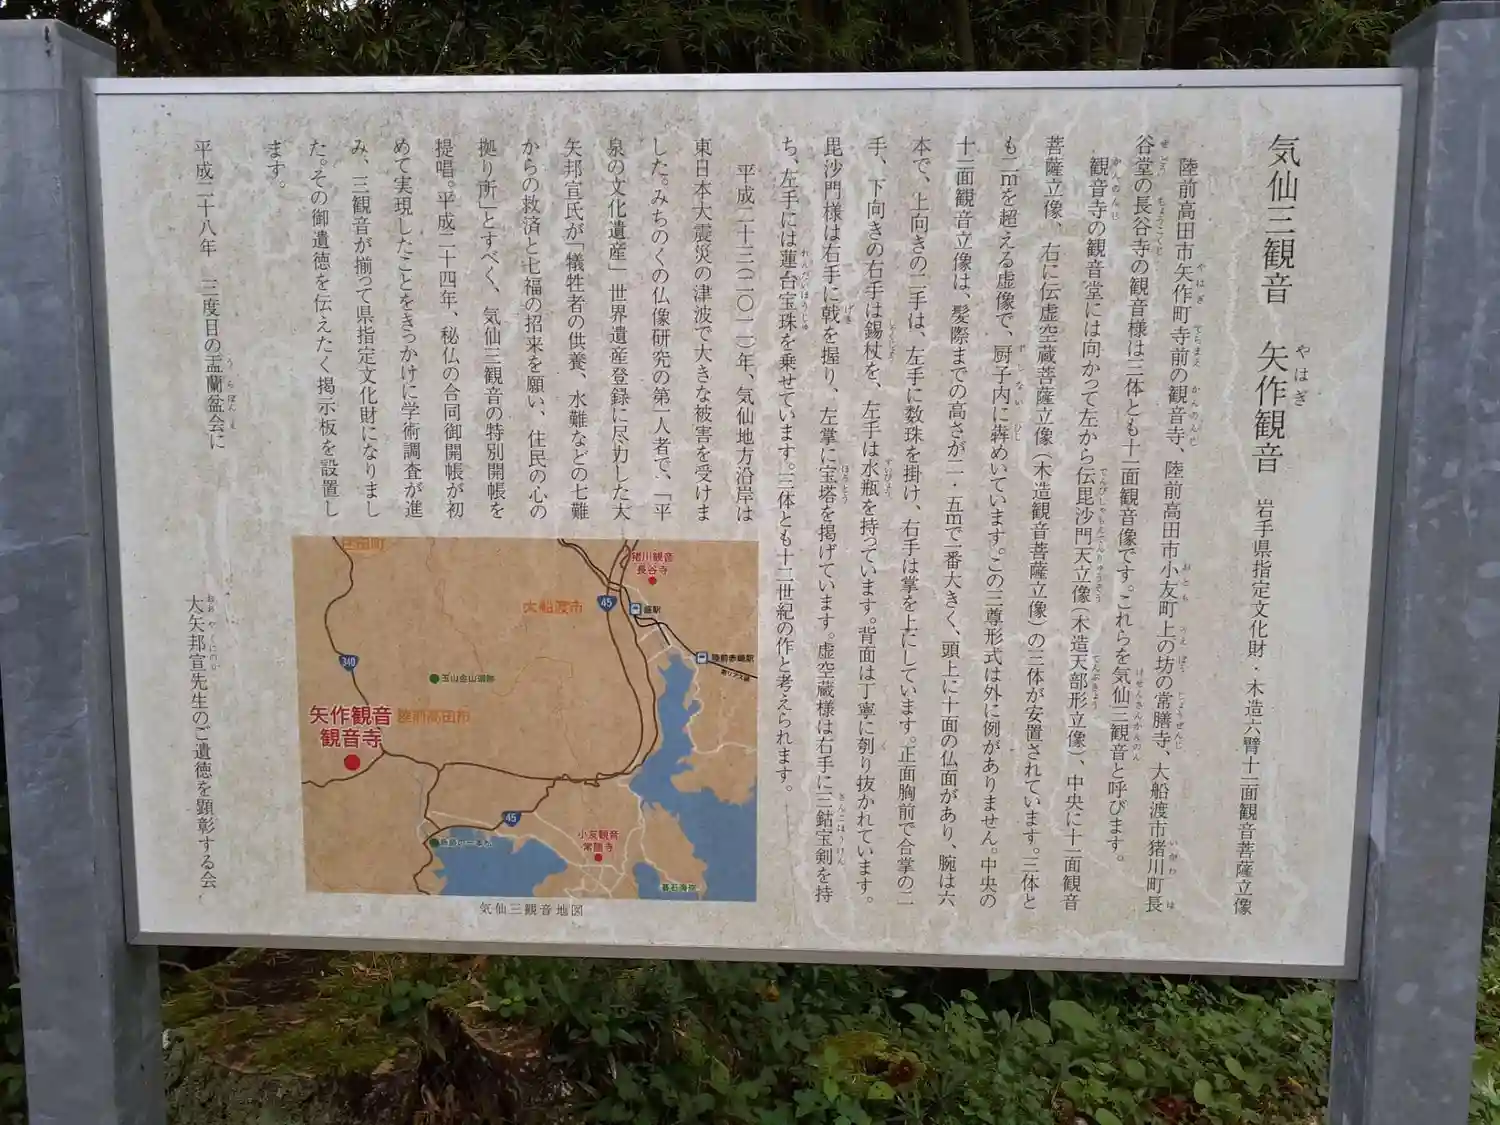 気仙三観音　矢作観音　岩手県指定文化財・木造六臂十一面観音菩薩立像
陸前高田市矢作町寺前の観音寺、陸前高田市小友町上の坊の常膳寺、大船渡市猪川町長
谷堂の長谷寺の観音様は三体とも十一面観音像です。これらを気仙三観音と呼びます。
観音寺の観音堂には向かって左から伝毘沙門天立像（木造天部形立像）、中央に十一面観音
菩薩立像、右に伝虚空蔵菩薩立像（木造観音菩薩立像）の三体が安置されています。三体と
も二mを超える虚像で、厨子内に犇めいています。この三尊形式は外に例がありません。中央の
十一面観音立像は、髪際までの高さが二・五mで一番大きく、頭上に十面の仏面があり、腕は六
本で、上向きの二手は、左手に数珠を掛け、右手は掌を上にしています。正面胸前で合掌の二
手、下向きの右手は錫杖を、左手は水瓶を持っています。背面は丁寧に刳り抜かれています。
毘沙門様は右手に戟を握り、左掌に宝塔を掲げています。虚空蔵様は右手に三鈷宝剣を持
ち、左手には蓮台宝珠を乗せています。三体とも十二世紀の作と考えられます。
平成二十三（二〇一一）年、気仙地方沿岸は
東日本大震災の津波で大きな被害を受けま
した。みちのくの仏像研究の第一人者で、「平
泉の文化遺産」世界遺産登録に尽力した大
矢邦宣氏が「犠牲者の供養、水難などの七難
からの救済と七福の招来を願い、住民の心の
拠り所」とすべく、気仙三観音の特別開帳を
提唱。平成二十四年、秘仏の合同御開帳が初
めて実現したことをきっかけに学術調査が進
み、三観音が揃って県指定文化財になりまし
た。その御遺徳を伝えたく掲示板を設置し
ます。
平成二十八年　三度目の盂蘭盆会に
大矢邦宣先生のご遺徳を顕彰する会
住田町
猪川観音
長谷寺
大船渡市
45
盛駅
陸前赤崎駅
340
矢作観音
観音寺
陸前高田市
45
小友観音
常膳寺
碁石海岸
気仙三観音地図